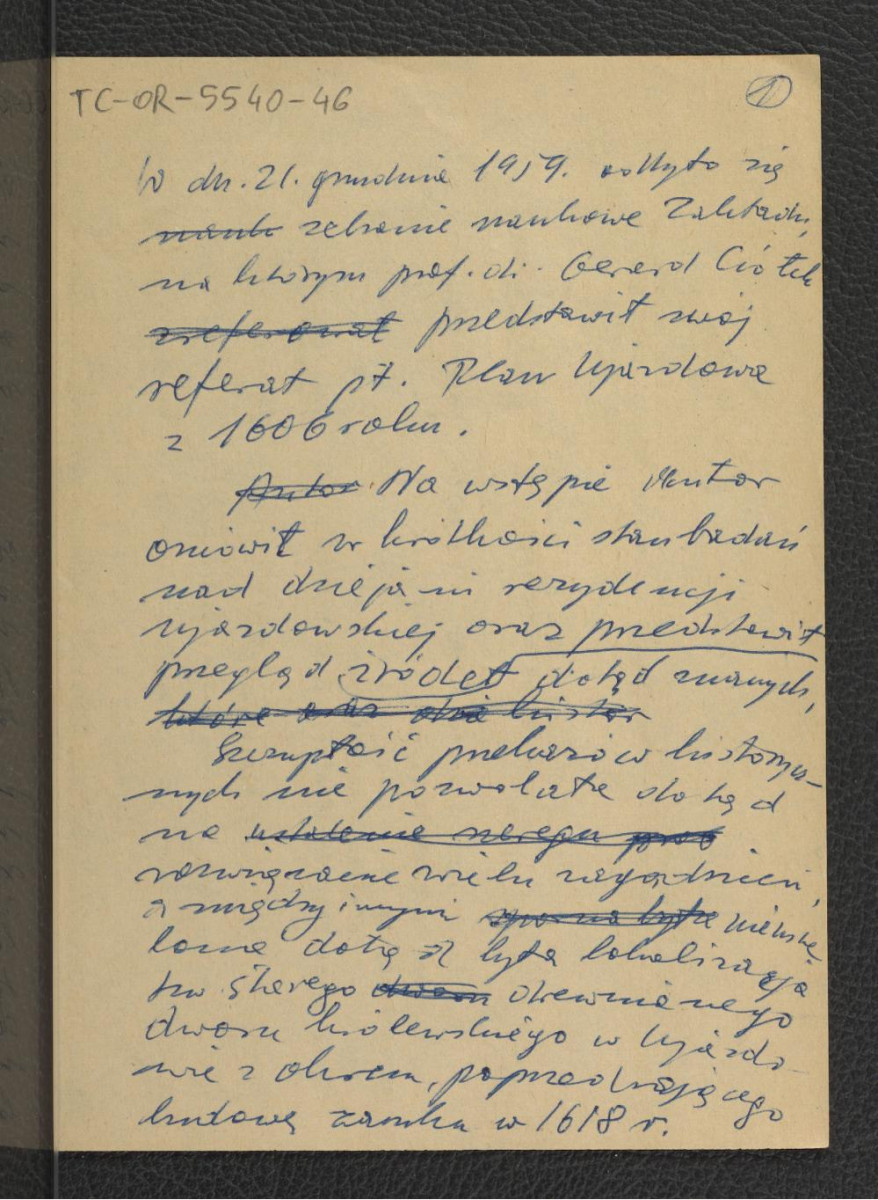 TC-OR-5540-46
1
W dn. 21. grudnia 1959. odbyło się
nauk zebranie naukowe Zakładu,
na którym prof. dr. Gerard Ciołek
zreferował przedstawił swój
referat pt. Plan Ujazdowa
z 1606 roku.
Autor Na wstępie Autor
omówił w krótkości stan badań
nad dziejami rezydencji
ujazdowskiej oraz przedstawił
przegląd źródeł dotąd znanych,
które oraz histor
Szczupłość przekazów historycz-
nych nie pozwalała dotąd
na ustalenie szeregu
rozwiązanie wielu zagadnień,
a między innymi sporna była nieusta
lona dotąd była lokalizacja
tzw starego dworu drewnianego
dworu królewskiego w Ujazdo-
wie z okresu, poprzedzającego
budowę zamku w 1618 r.